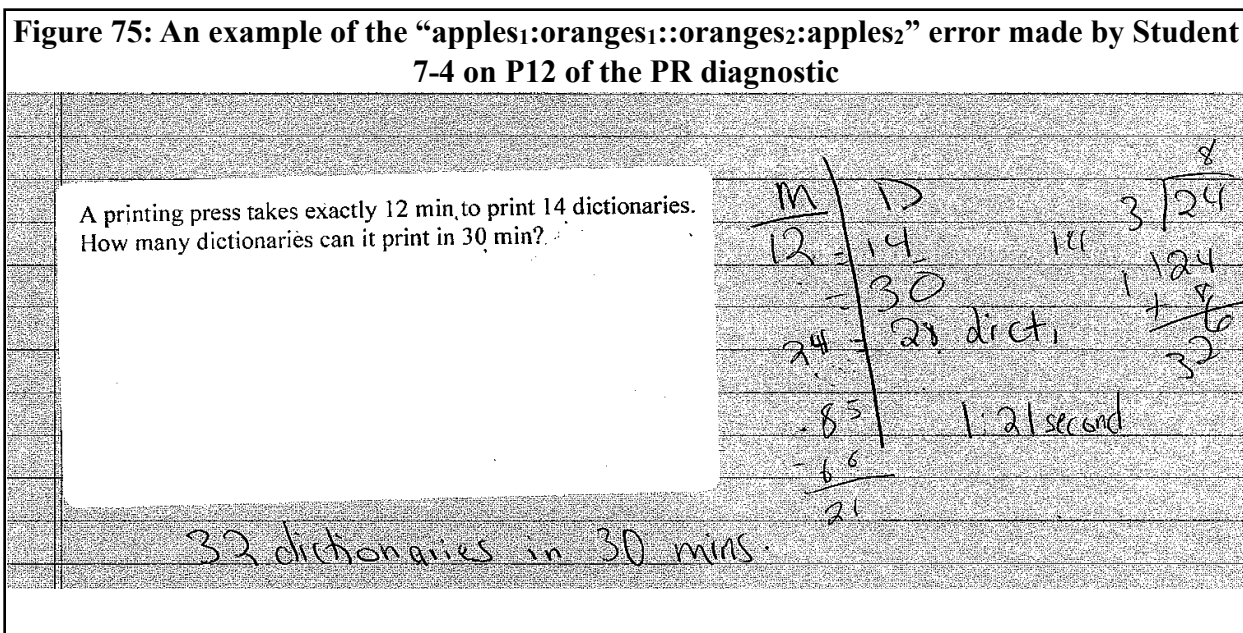 Figure 75: An example of the “apples₁:oranges₁::oranges₂:apples₂” error made by Student
7-4 on P12 of the PR diagnostic
A printing press takes exactly 12 min to print 14 dictionaries.
How many dictionaries can it print in 30 min?
M D
12 = 14
- 30
24 = 28 dict,
85
- 66
21
1:21 second
8
3 24
124
+ 8
32
32 dictionaries in 30 mins.